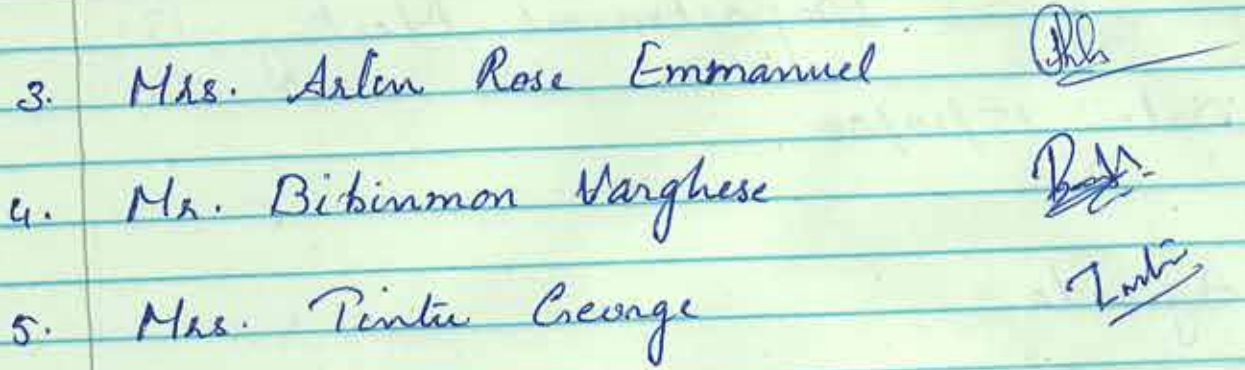 3. Mrs. Arlin Rose Emmanuel
4. Mr. Bibinmon Varghese
5. Mrs. Tintu George